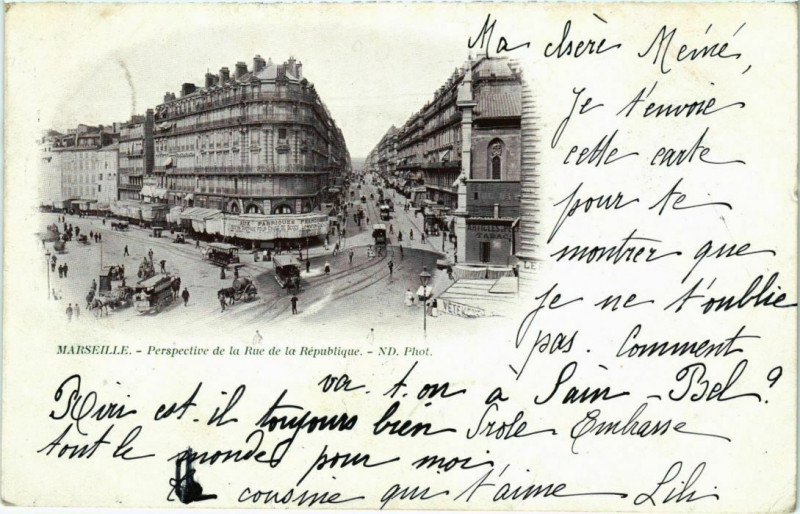 Ma chère Méiné,
Je t'envoie
cette carte
pour te
montrer que
je ne t'oublie
pas. Comment
va-t-on à Sain-Bel ?
Riri est-il toujours bien drole Embrasse
tout le monde pour moi
Ta cousine qui t'aime Lili
MARSEILLE. - Perspective de la Rue de la République. - ND. Phot.
AUX FABRIQUES
TABAC